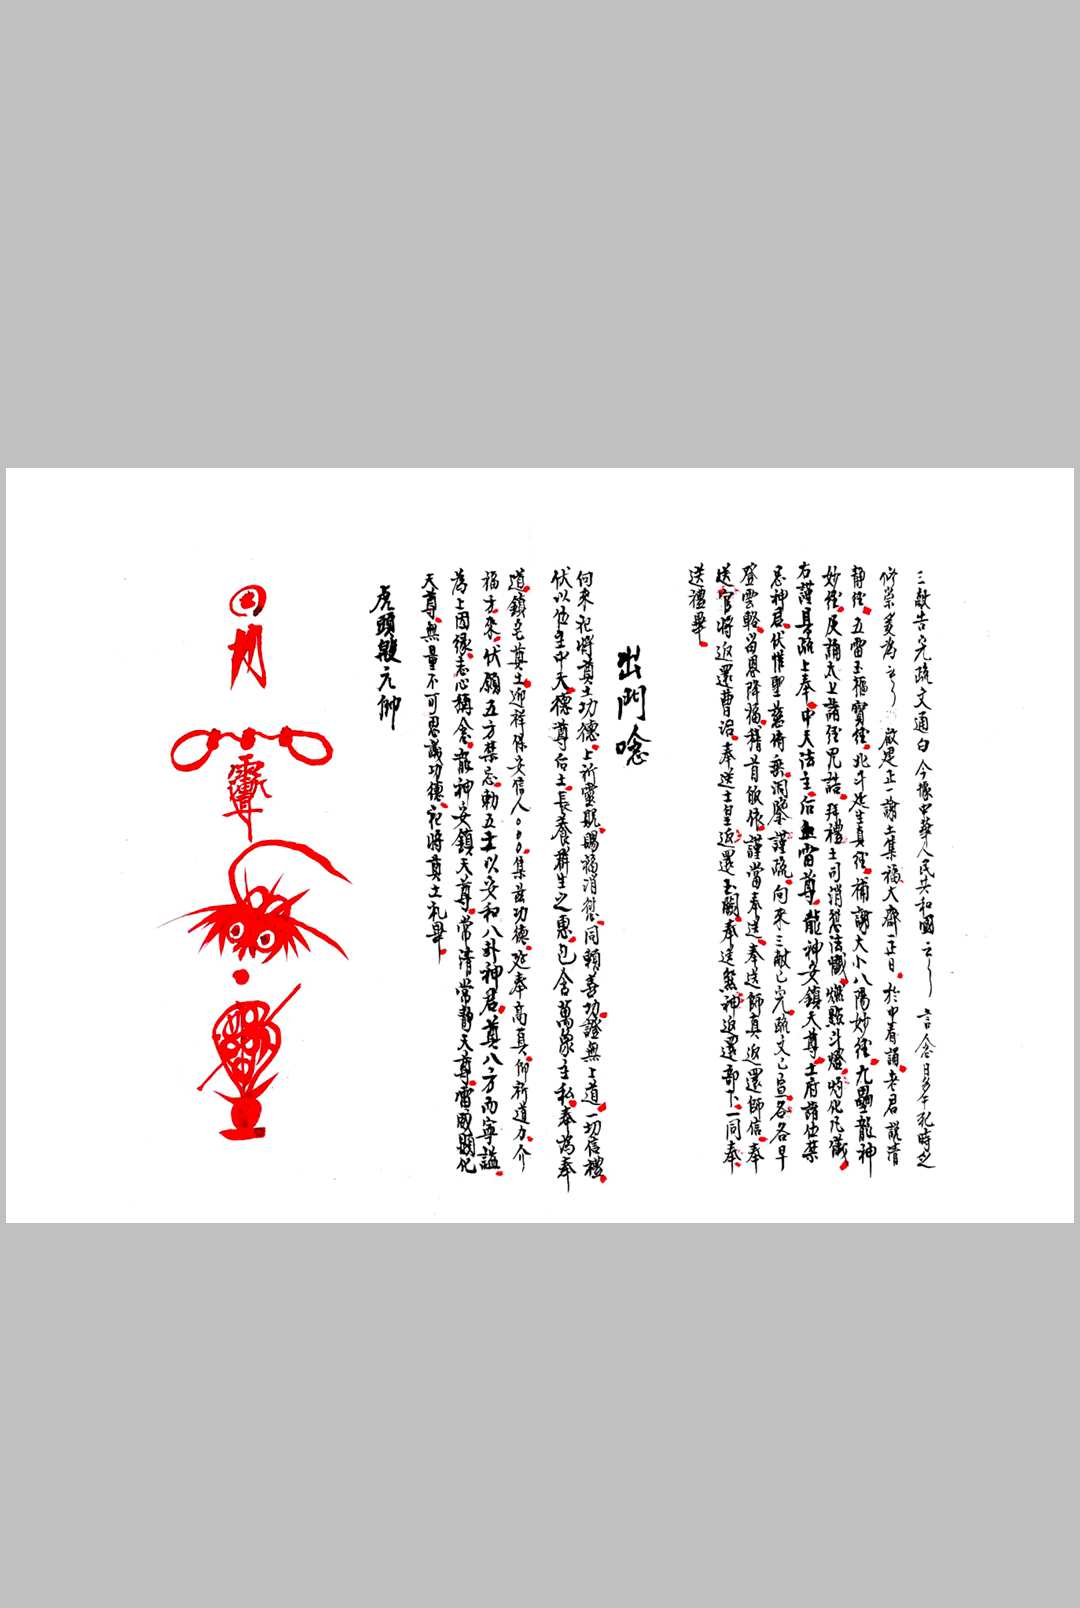 三献告完疏文通白今據中華人民共和國云云言念日多干犯時之
修崇爰為云云啟建正一謝土集福大齋一正日於中看誦老君說清
靜經五雷玉樞寶經北斗延生真經補謝大小八陽妙經九壘龍神
妙經及誦太上諸經咒誥拜禮土司消愆法懺燃點斗燈特化凡儀
右謹具疏上奉中天法主后土皇帝尊龍神安鎮天尊土府諸位禁
忌神君伏惟聖慈俯垂洞鑒謹疏向來三献已完疏文已宣各各早
登雲輅留恩降福稽首皈依謹當奉送奉送師真返還師信奉
送官將返還曹治奉送土皇返還玉闕奉送煞神返還部下一同奉
送禮畢
出門唸
向來祀將奠土功德上祈靈貺賜福消愆同賴善功證無上道一切信禮
伏以位主中天德尊后土長養群生之惠包含萬象主私奉為奉
道鎮宅奠土迎祥保安信人○○○集茲功德延奉高真仰祈道力介
福方來伏願五方禁忌勅五土以安和八卦神君奠八方而寧謐
為上因緣志心稱念龍神安鎮天尊常清常靜天尊雷威顯化
天尊無量不可思議功德祀將奠土禮畢
虎頭殷元帥